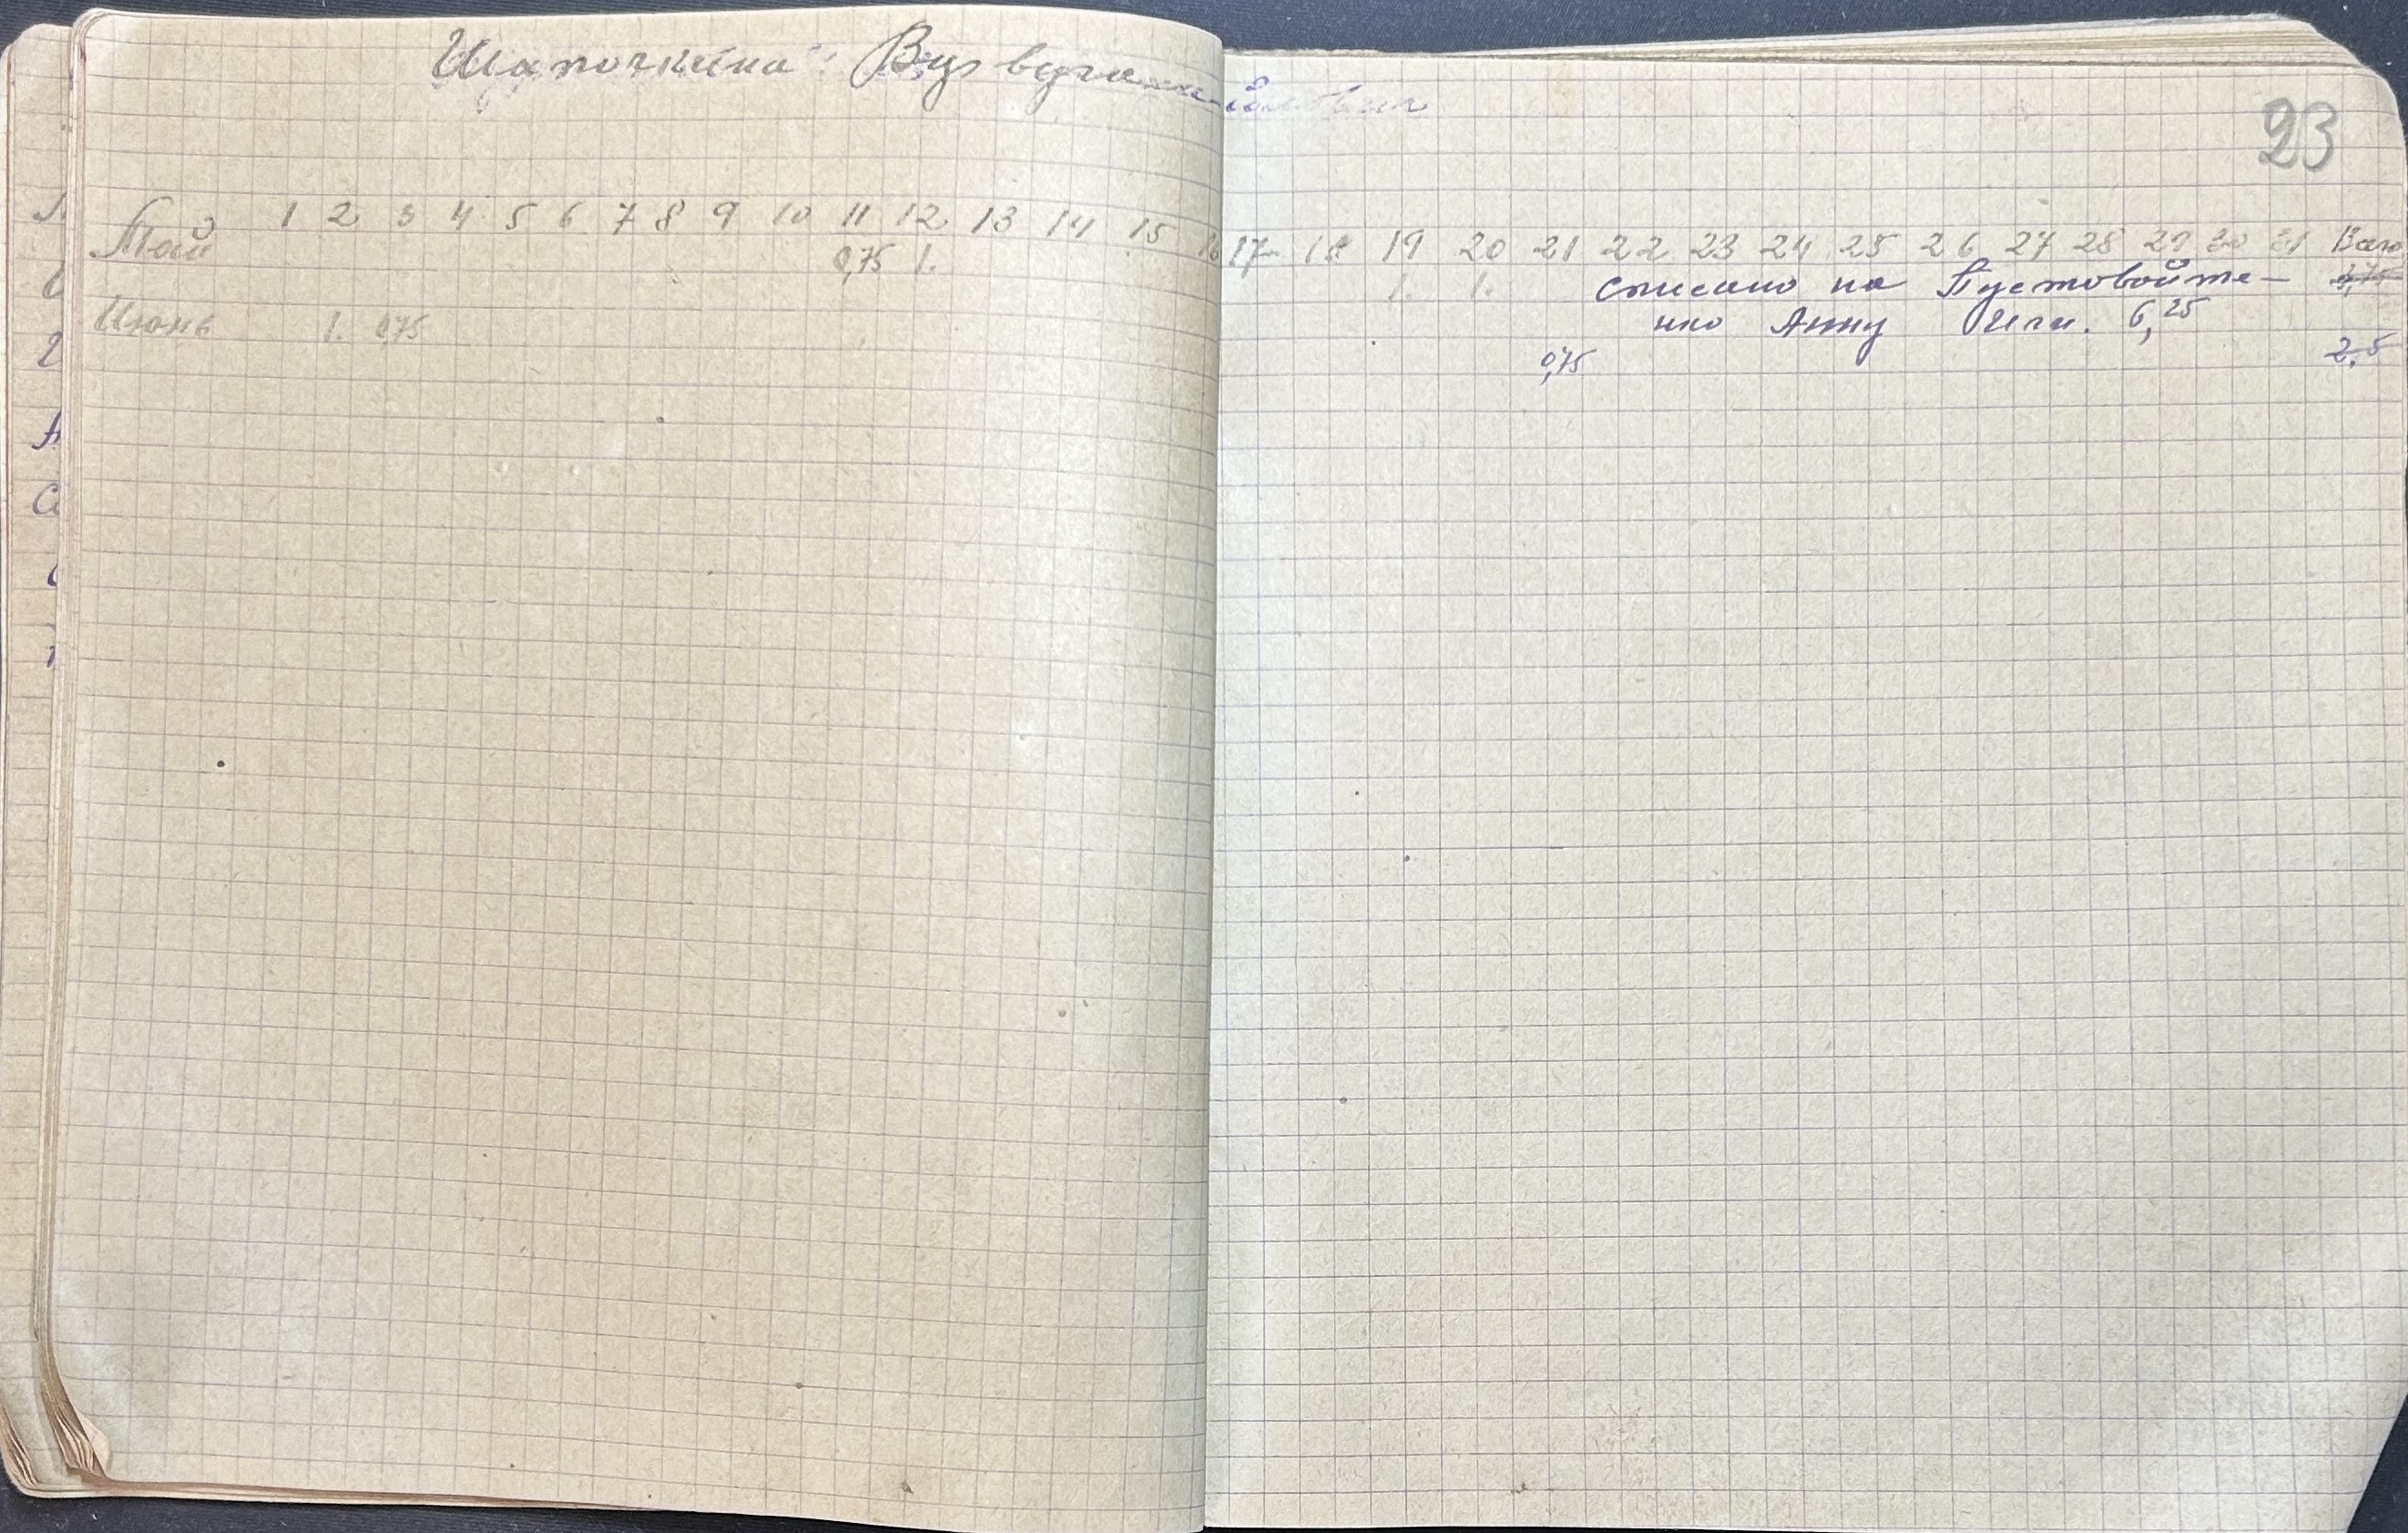 Шапочкина
23
1 2 3 4 5 6 7 8 9 10 11 12 13 14 15 16 17 18 19 20 21 22 23 24 25 26 27 28 29 30 31 Всего
Май 0,75 1. 1. 1. списано на Пустовойте-
Июнь 1. 0,75 нко Анну 6,25
0,75 2,5